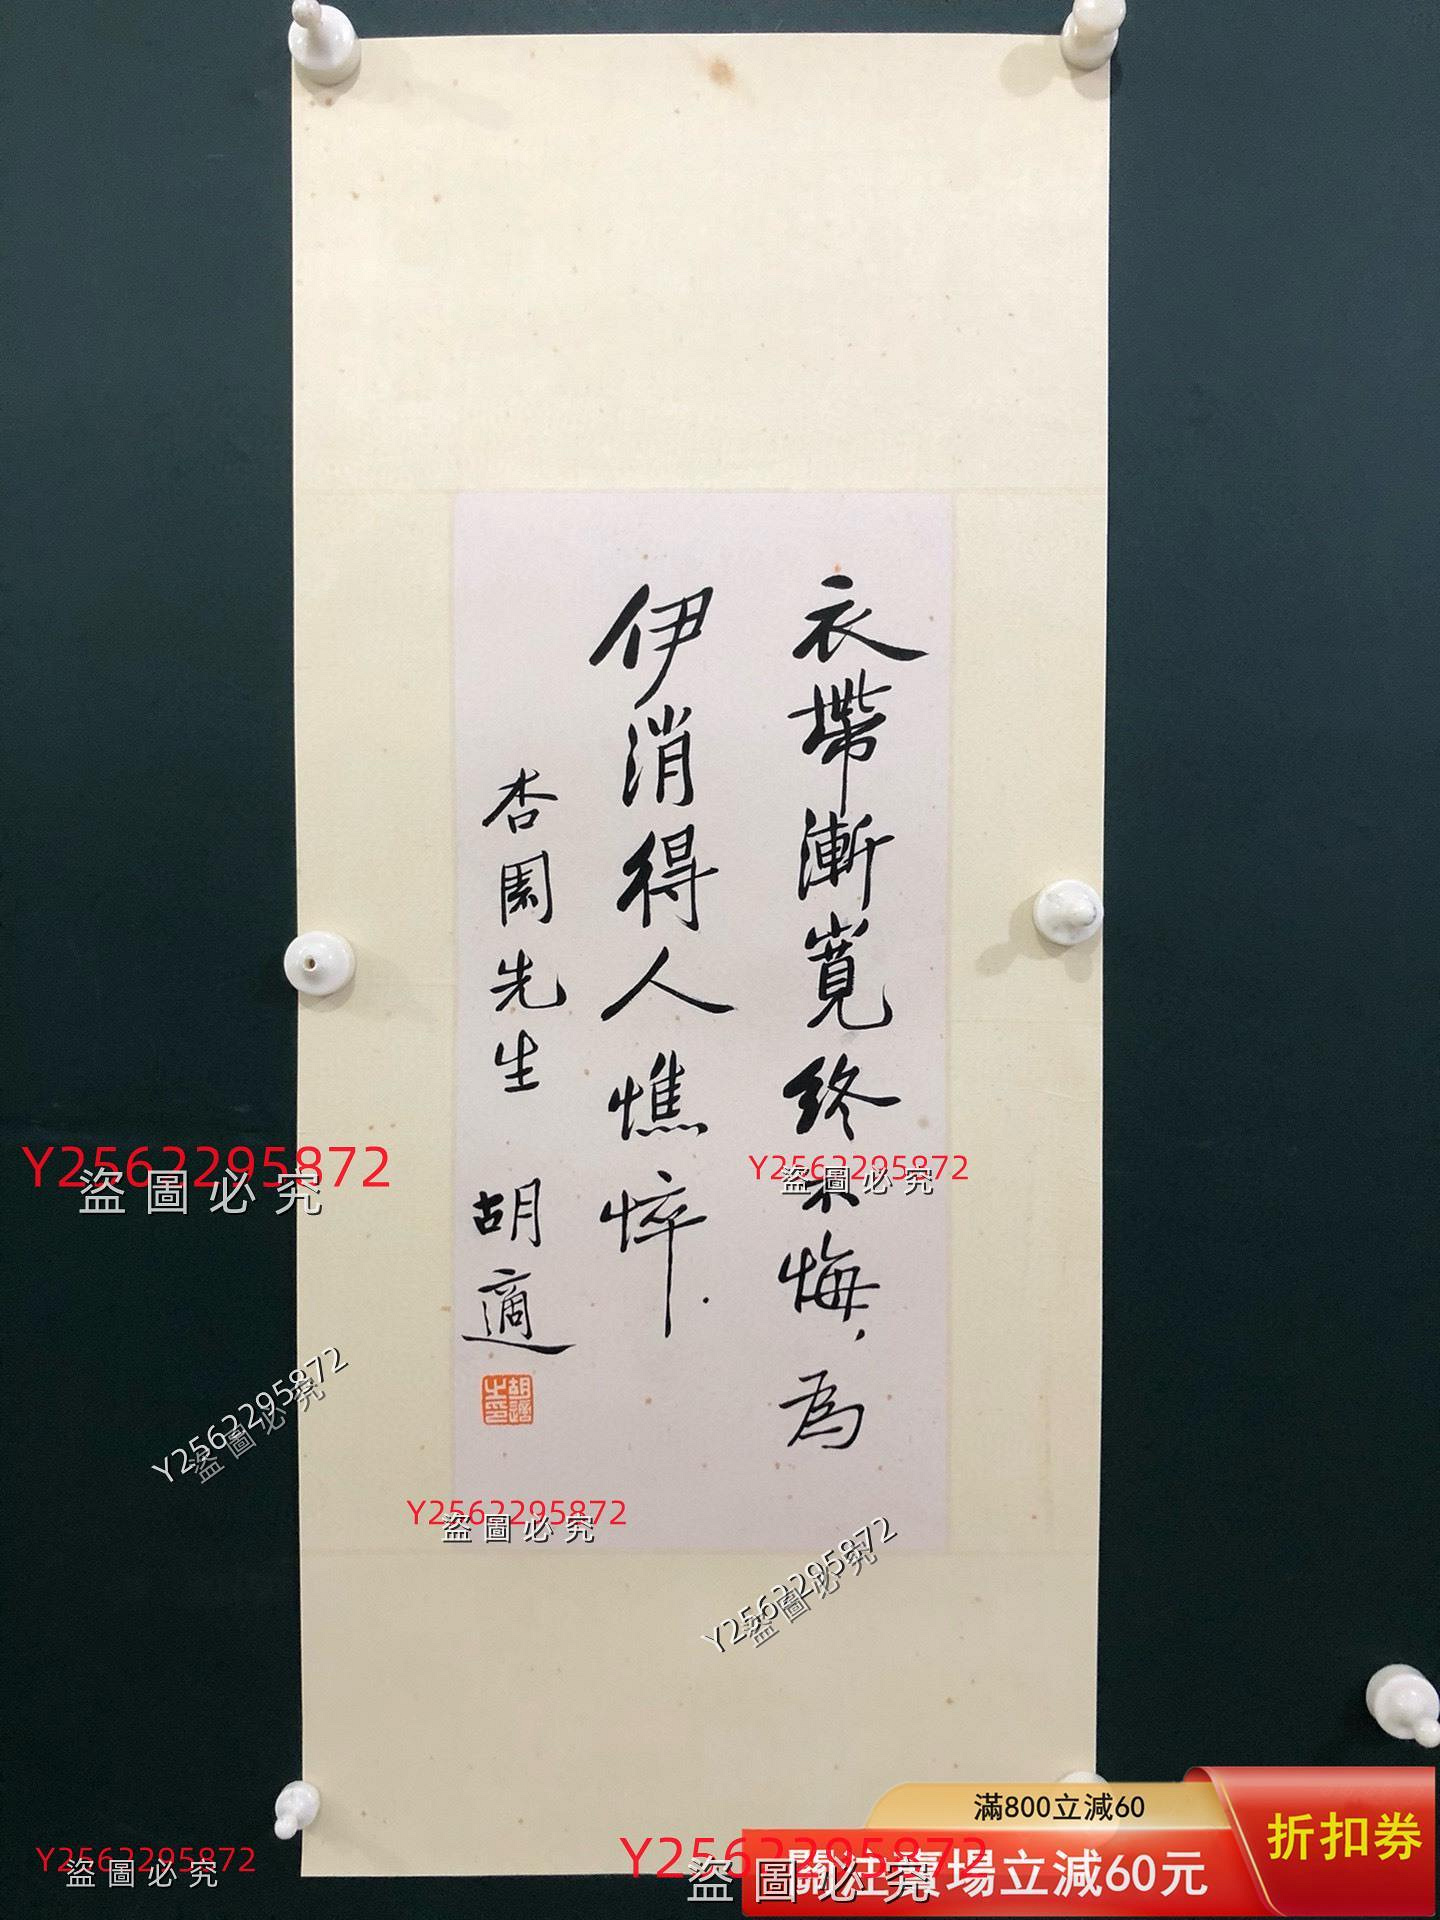 衣帶漸寬終不悔，為
伊消得人憔悴．
杏園先生
胡適
胡適之印
Y2562295872
盜圖必究
Y2562295872
盜圖必究
Y2562295872
盜圖必究
Y2562295872
盜圖必究
Y2562295872
盜圖必究
Y2562295872
盜圖必究
Y2562295872
盜圖必究
滿800立減60
關注賣場立減60元
折扣券